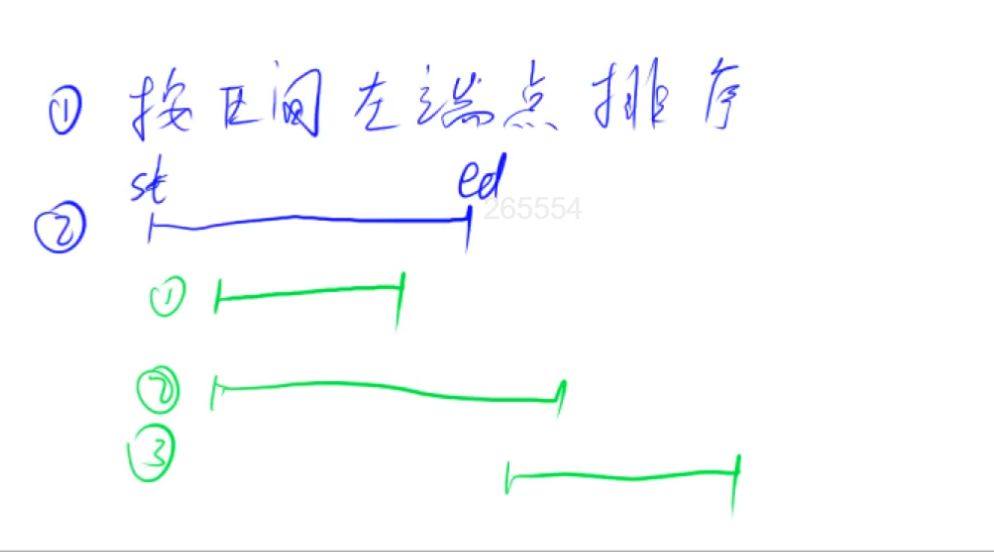 ① 按区间左端点排序
st ed
265554
②
①
②
③